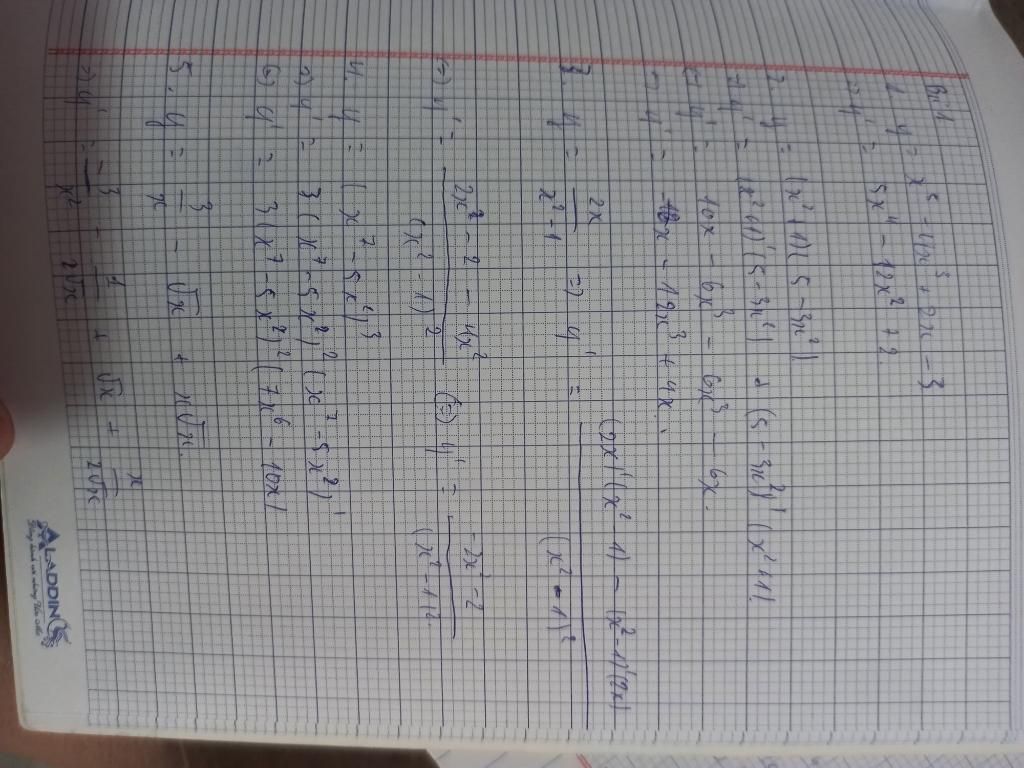 Bài 1
1. y = x⁵ - 4x³ + 2x - 3
=> y' = 5x⁴ - 12x² + 2
2. y = (x² + 1)(5 - 3x²)
=> y' = (x² + 1)'(5 - 3x²) + (5 - 3x²)' (x² + 1)
<=> y' = 10x - 6x³ - 6x³ - 6x.
=> y' = - 12x³ + 4x.
3. y = 2x / (x² - 1) => y' = ((2x)'(x² - 1) - (x² - 1)'(2x)) / (x² - 1)²
=> y' = (2x² - 2 - 4x²) / (x² - 1)² (=) y' = (-2x² - 2) / (x² - 1)².
4. y = (x⁷ - 5x²)³
=> y' = 3(x⁷ - 5x²)² (x⁷ - 5x²)'
<=> y' = 3(x⁷ - 5x²)² (7x⁶ - 10x)
5. y = 3/x - √x + x√x.
=> y' = -3/x² - 1/(2√x) + √x + x/(2√x)
ALADDIN